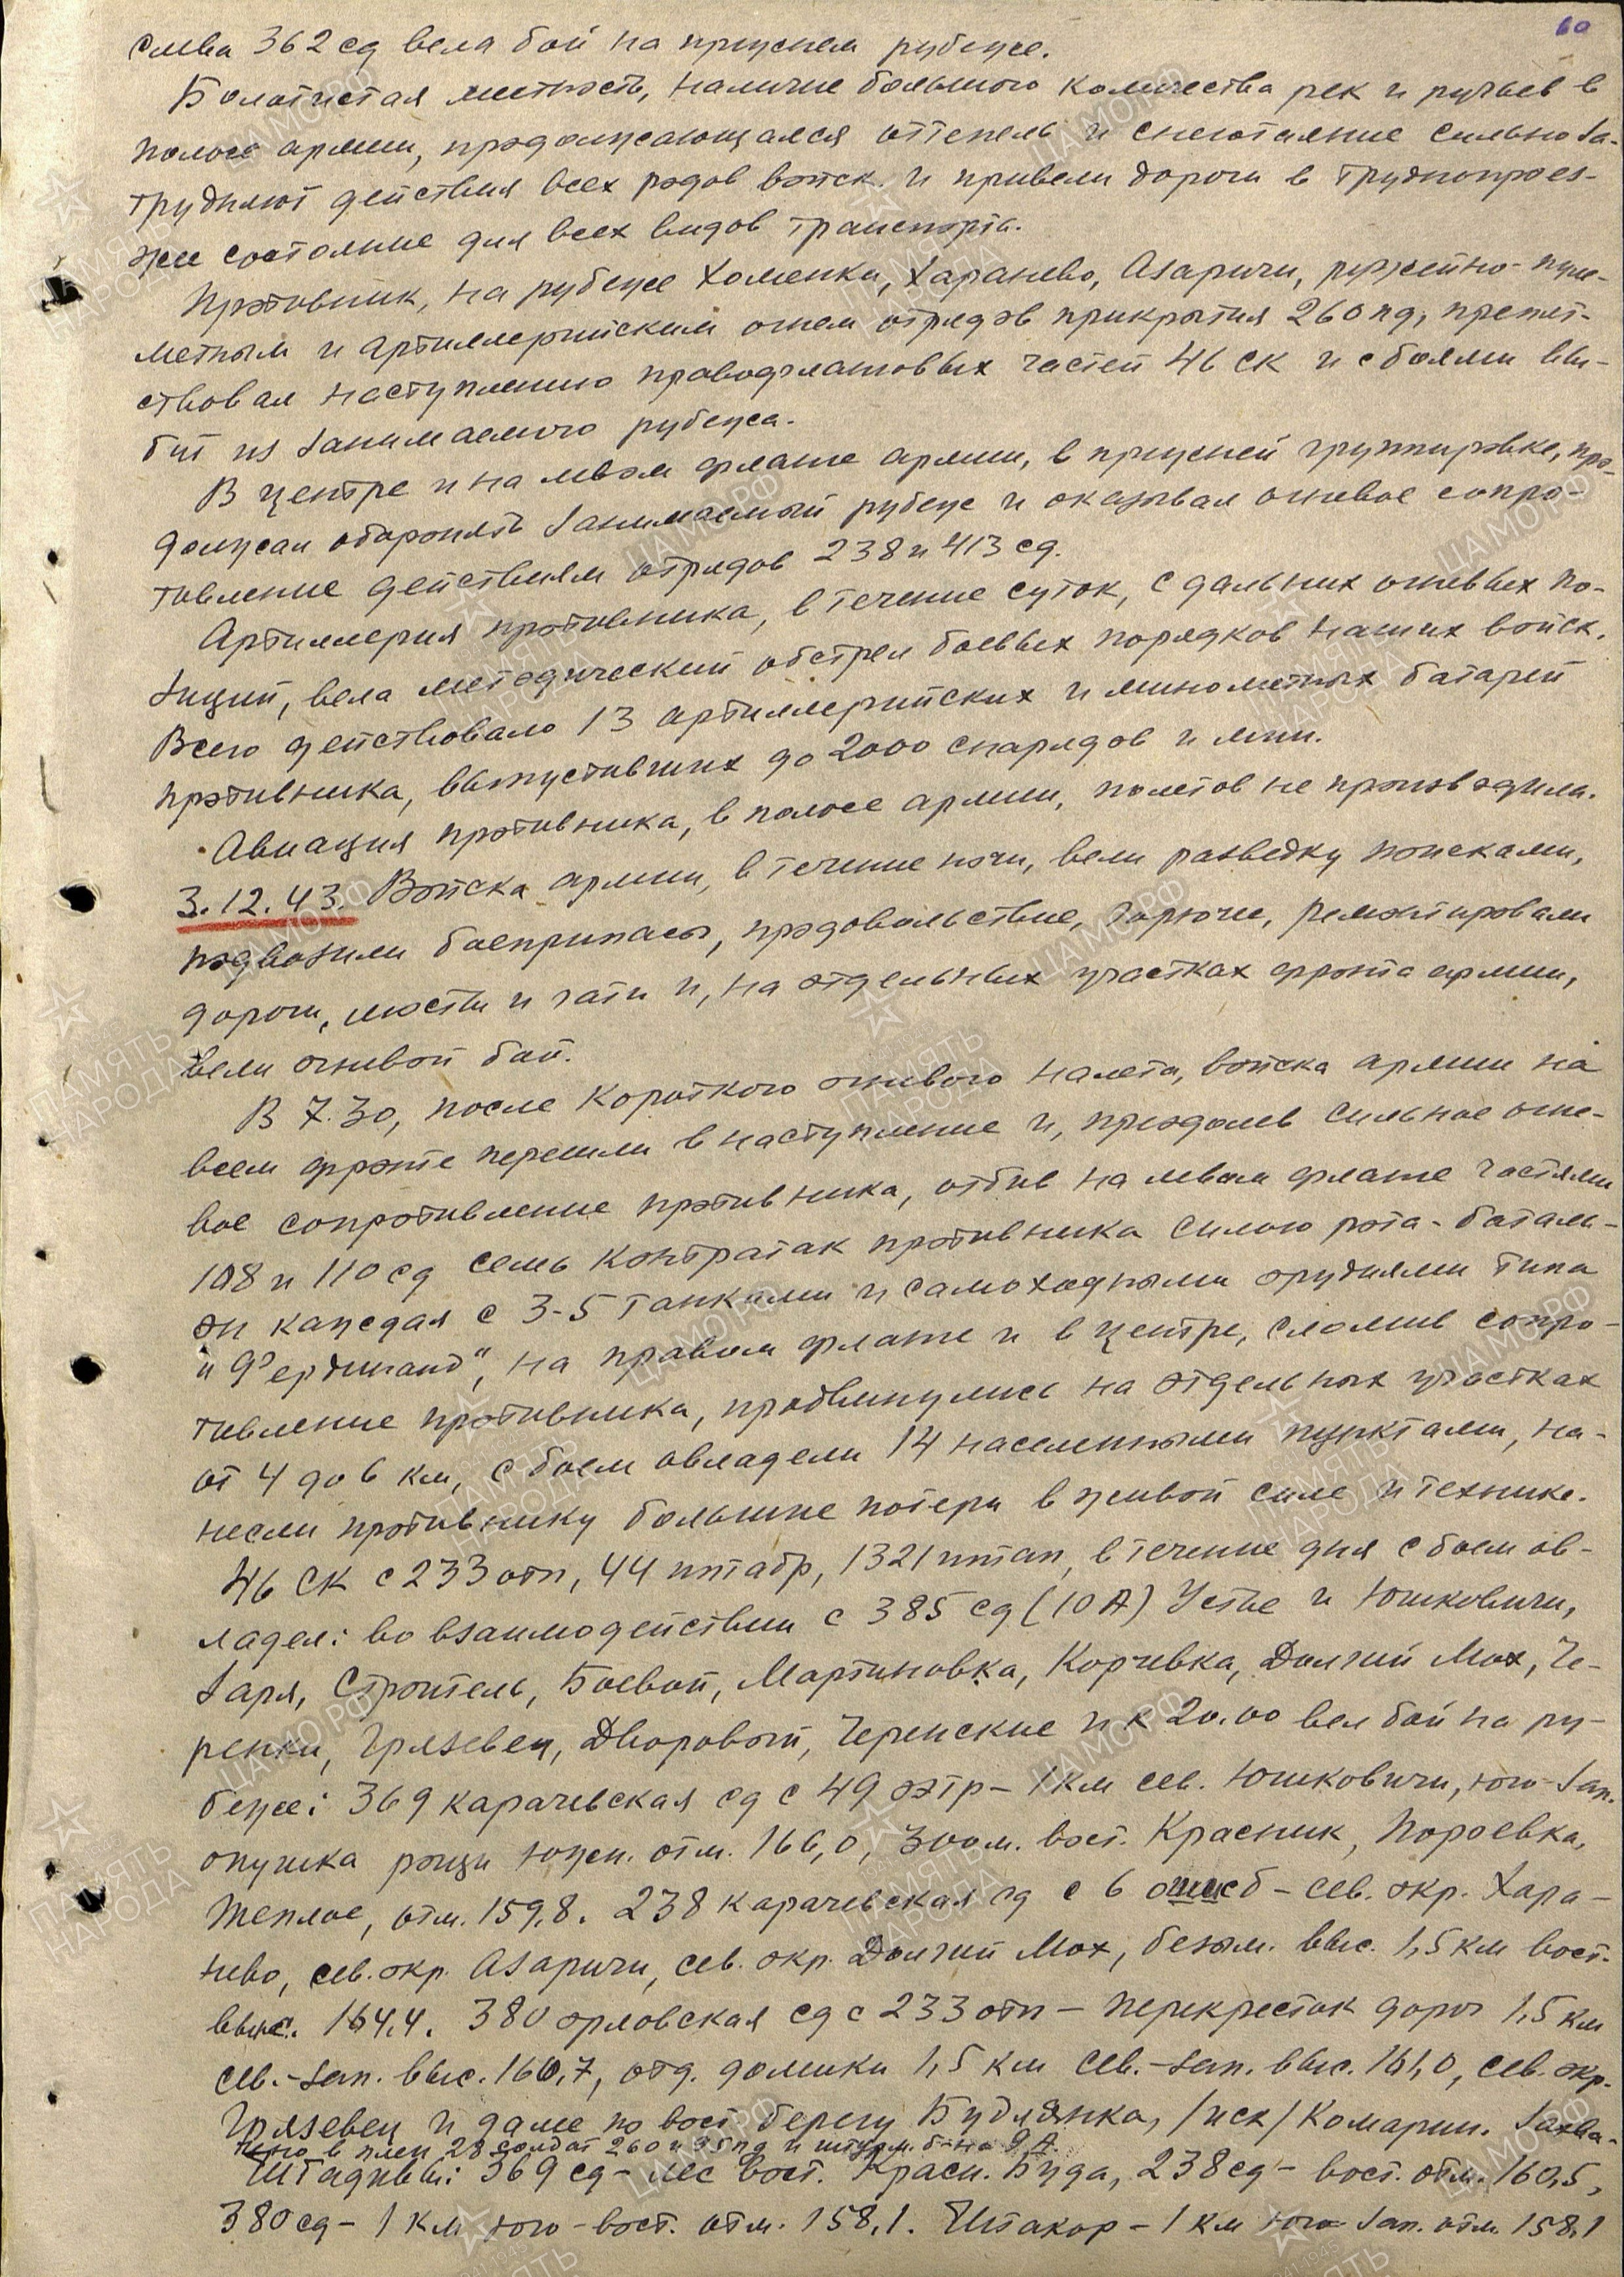 60
слева 362 сд вела бой на прежнем рубеже.
Болотистая местность, наличие большого количества рек и ручьев в
полосе армии, продолжающаяся оттепель и снеготаяние сильно за-
трудняют действия всех родов войск. и привели дороги в труднопроез-
жее состояние для всех видов транспорта.
Противник, на рубеже Хоменки, Харанево, Азаричи, ружейно-пуле-
метным и артиллерийским огнем отрядов прикрытия 260 пд, препят-
ствовал наступлению правофланговых частей 46 ск и с боями вы-
бит из занимаемого рубежа.
В центре и на левом фланге армии, в прежней группировке, про-
должал оборонять занимаемый рубеж и оказывал огневое сопро-
тивление действиям отрядов 238 и 413 сд.
Артиллерия противника, в течение суток, с дальних огневых по-
зиций, вела методический обстрел боевых порядков наших войск.
Всего действовало 13 артиллерийских и минометных батарей
противника, выпустивших до 2000 снарядов и мин.
Авиация противника, в полосе армии, полетов не производила.
3.12.43. Войска армии, в течение ночи, вели разведку поисками,
подвозили боеприпасы, продовольствие, горючее, ремонтировали
дороги, мосты и гати и, на отдельных участках фронта армии,
вели огневой бой.
В 7.30, после короткого огневого налета, войска армии на
всем фронте перешли в наступление и, преодолев сильное огне-
вое сопротивление противника, отбив на левом фланге частями
108 и 110 сд семь контратак противника силою рота-батальо-
он каждая с 3-5 танками и самоходными орудиями типа
"Фердинанд", на правом фланге и в центре, сломив сопро-
тивление противника, продвинулись на отдельных участках
от 4 до 6 км, с боем овладели 14 населенными пунктами, на-
несли противнику большие потери в живой силе и технике.
46 СК с 233 отп, 44 иптабр, 1321 иптап, в течение дня с боем ов-
ладел: во взаимодействии с 385 сд (10 А) Устье и Юшковичи,
Заря, Строитель, Боевой, Мартиновка, Корчевка, Долгий Мох, Че-
ренки, Грязевец, Дворовой, Черенские и к 20.00 вел бой на ру-
беже: 369 карачевская сд с 49 - 1 км сев. Юшковичи, юго-зап.
опушка рощи южн. отм. 166,0, 300 м. вост. Красник, Пороевка,
Теплое, отм. 159,8. 238 карачевская сд с 6 ошисб - сев. окр. Хара-
нево, сев. окр. Азаричи, сев. окр. Долгий Мох, безым. выс. 1,5 км вост.
выс. 164,4. 380 орловская сд с 233 отп - перекресток дорог 1,5 км
сев.-зап. выс. 160,7, отд. домики 1,5 км сев.-зап. выс. 161,0, сев. окр.
Грязевец и далее по вост берегу Будлянка, /иск/ Комарин. Захва-
чено в плен 28 солдат 260 и 95 пд и штурм. б-на 9 А.
Штадивы: 369 сд - лес вост. Красн. Буда, 238 сд - вост. отм. 160,5,
380 сд - 1 км юго-вост. отм. 158,1. Штакор - 1 км юго-зап. отм. 158,1